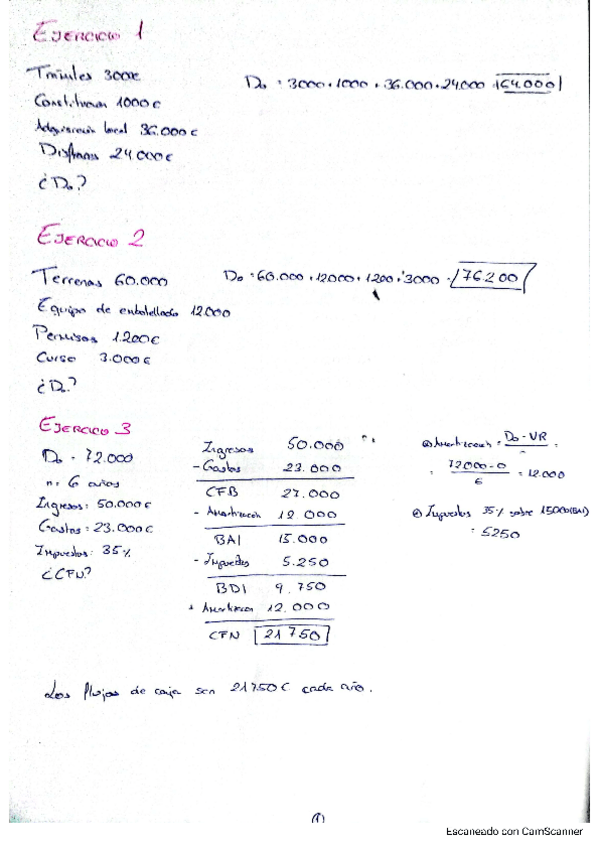 EJERCICIO 1
Trámites 3000€
Do = 3000 + 1000 + 36.000 + 24.000 = 64.000
Constitución 1000€
Adquisición local 36.000€
24.000€
¿Do?
EJERCICIO 2
Terrenos 60.000
Do = 60.000 + 12000 + 1200 + 3000 = 76200
Equipo de embotellado 12000
Permisos 1.200€
Curso 3.000€
¿Do?
EJERCICIO 3
Do = 72.000
n = 6 años
Ingresos: 50.000€
Gastos: 23.000€
Impuestos: 35%
¿CFN?
Ingresos 50.000
- Gastos 23.000
CFB 27.000
- Amortización 12 000
BAI 15.000
- Impuestos 5.250
BDI 9.750
+ Amortización 12.000
CFN 21750
Amortización = Do - VR / n =
= 72000 - 0 / 6 = 12.000
Impuestos 35% sobre 15000 (BAI)
= 5250
Los flujos de caja son 21750€ cada año.
(1)
Escaneado con CamScanner